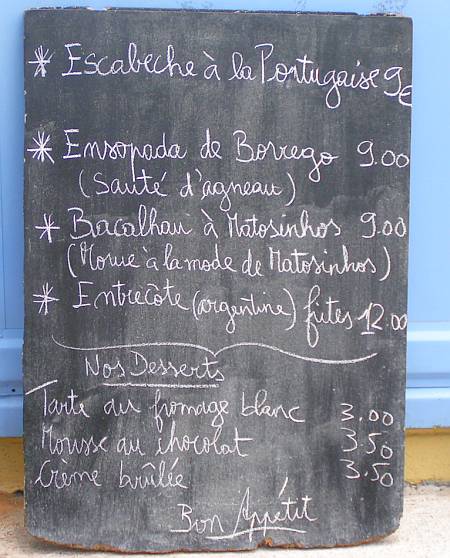 * Escabeche à la Portugaise 9€
* Ensopada de Borrego 9.00
(Sauté d'agneau)
* Bacalhau à Matosinhos 9.00
(Morue à la mode de Matosinhos)
* Entrecôte (argentine) frites 12.00
Nos Desserts
Tarte au fromage blanc 3.00
Mousse au chocolat 3.50
Crème brûlée 3.50
Bon Appétit